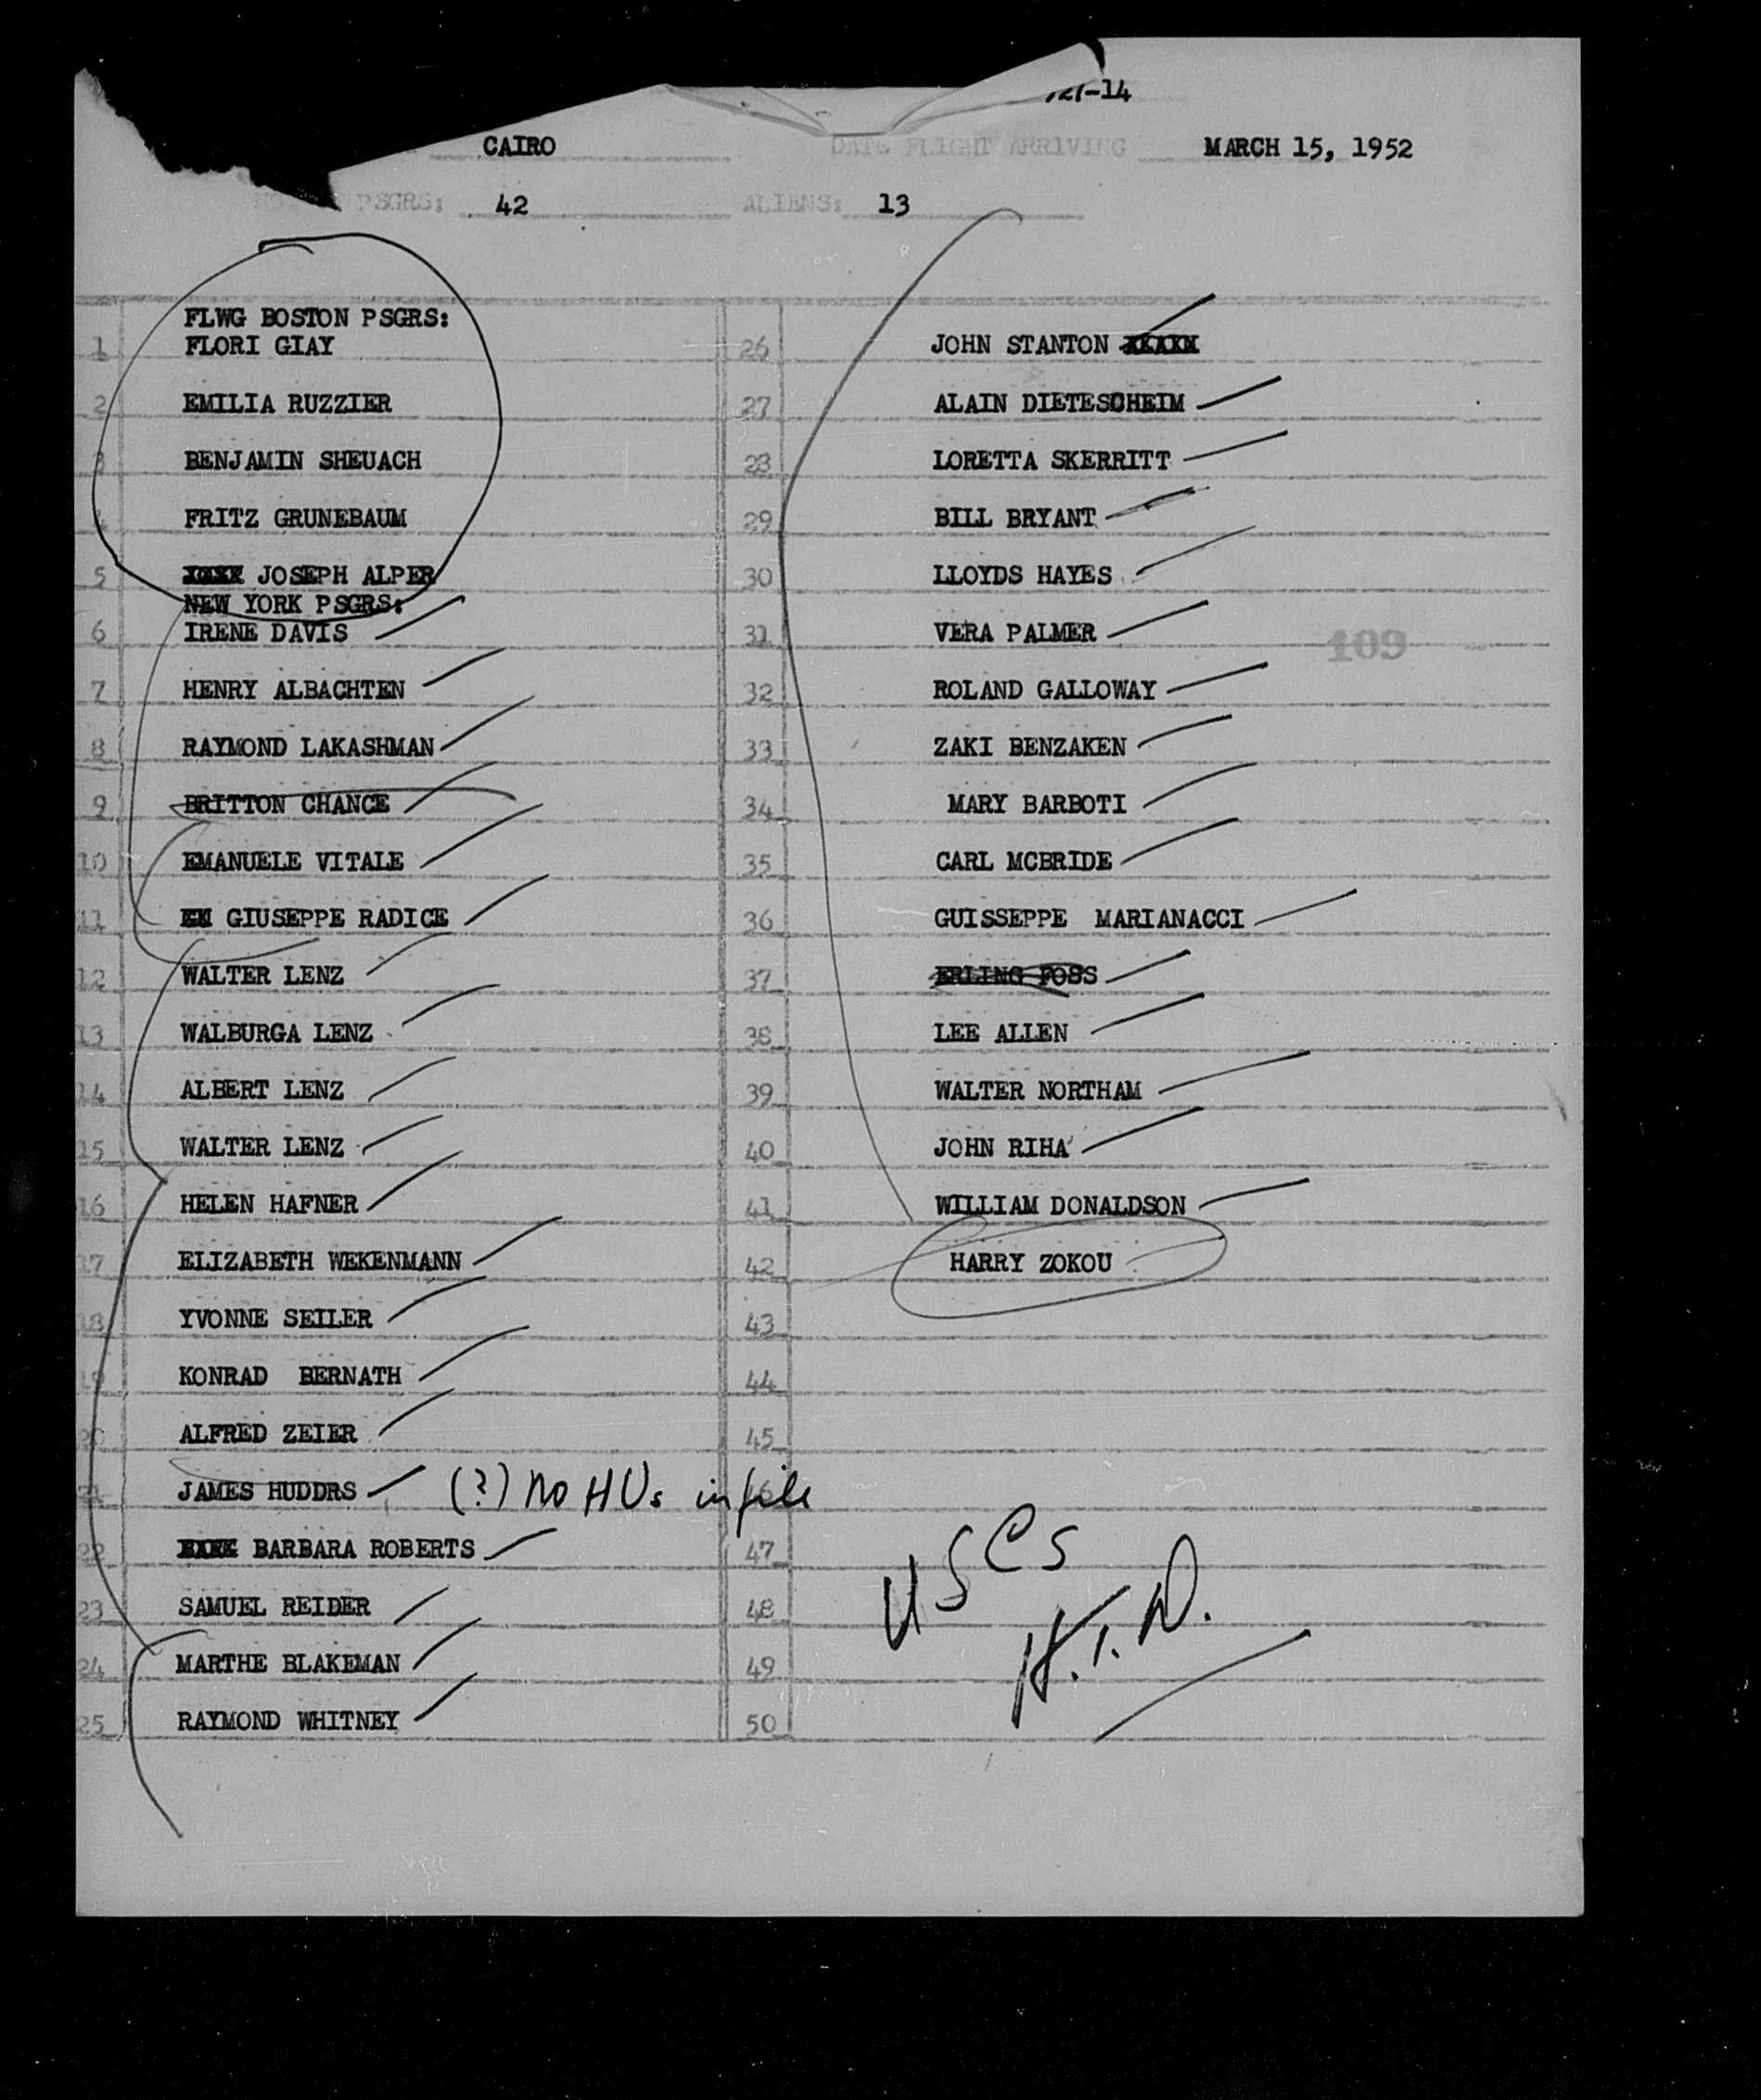 -14
CAIRO DATE FLIGHT ARRIVING MARCH 15, 1952
PSGRS: 42 ALIENS: 13
FLWG BOSTON PSGRS:
1 FLORI GIAY
2 EMILIA RUZZIER
3 BENJAMIN SHEUACH
4 FRITZ GRUNEBAUM
5 JOSEPH ALPER
NEW YORK PSGRS:
6 IRENE DAVIS
7 HENRY ALBACHTEN
8 RAYMOND LAKASHMAN
9 BRITTON CHANCE
10 EMANUELE VITALE
11 GIUSEPPE RADICE
12 WALTER LENZ
13 WALBURGA LENZ
14 ALBERT LENZ
15 WALTER LENZ
16 HELEN HAFNER
17 ELIZABETH WEKENMANN
18 YVONNE SEILER
19 KONRAD BERNATH
20 ALFRED ZEIER
21 JAMES HUDDRS (?) No HUs in file
22 BARBARA ROBERTS
23 SAMUEL REIDER
24 MARTHE BLAKEMAN
25 RAYMOND WHITNEY
26 JOHN STANTON
27 ALAIN DIETESCHEIM
28 LORETTA SKERRITT
29 BILL BRYANT
30 LLOYDS HAYES
31 VERA PALMER
109
32 ROLAND GALLOWAY
33 ZAKI BENZAKEN
34 MARY BARBOTI
35 CARL MCBRIDE
36 GUISSEPPE MARIANACCI
37 ERLING FOSS
38 LEE ALLEN
39 WALTER NORTHAM
40 JOHN RIHA
41 WILLIAM DONALDSON
42 HARRY ZOKOU
43
44
45
46
47
48
49
50
USCS